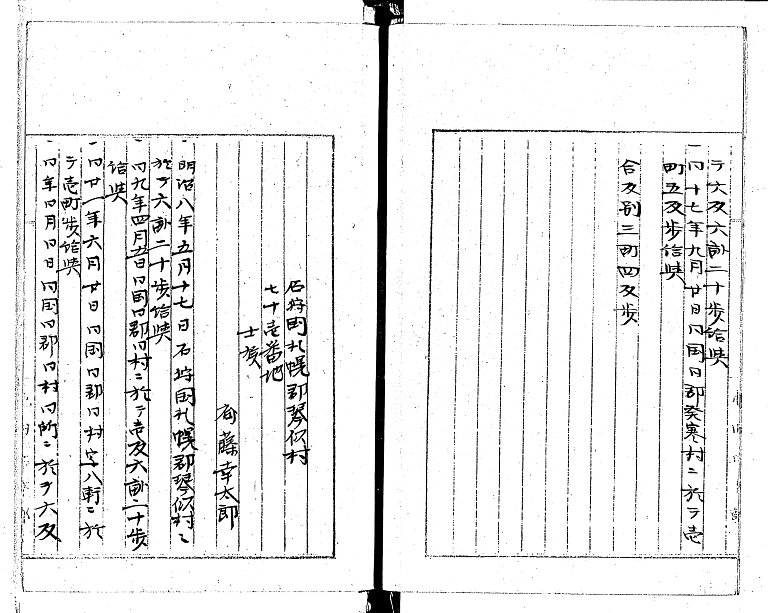 テ六反六畝二十歩給與
一同十七年九月廿日同国同郡発寒村ニ於テ壱
町五反歩給與
合反別三町四反歩
石狩国札幌郡琴似村
七十壱番地
士族
藤幸太郎
一明治八年五月十七日石狩国札幌郡琴似村ニ
於テ六畝二十歩給與
一同九年四月五日同国同郡同村ニ於テ壱反六畝二十歩
給與
一同廿一年六月廿日同国同郡同村字八軒ニ於
テ壱町歩給與
一同年同月同日同国同郡同村同所ニ於テ六反